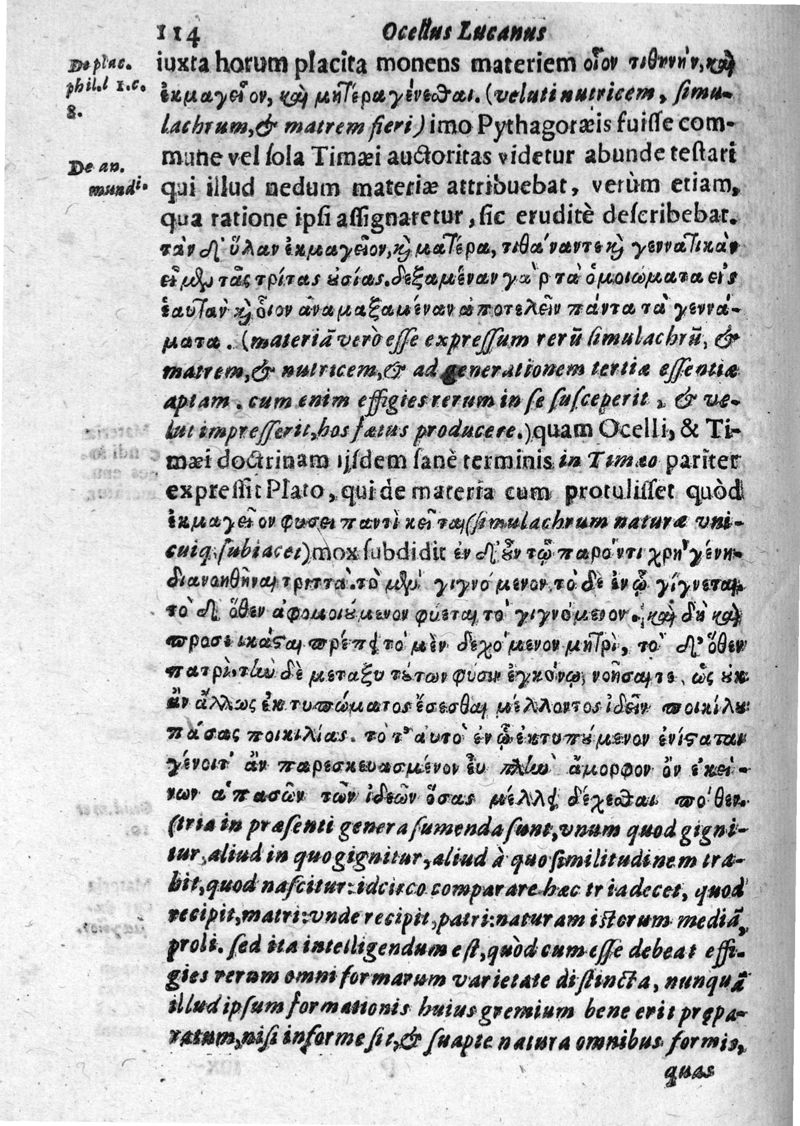 114 Ocellus Lucanus
De plac.
phil. l 1. c.
8.
De an.
mundi.
iuxta horum placita monens materiem οἷον τιθηνὴν, καὶ
ἐκμαγεῖον, καὶ μητέρα γένεσθαι. (veluti nutricem, simu-
lachrum, & matrem fieri) imo Pythagoræis fuisse com-
mune vel sola Timæi auctoritas videtur abunde testari
qui illud nedum materiæ attribuebat, verùm etiam,
qua ratione ipsi assignaretur, sic eruditè describebat.
τὰν δ' ὕλαν ἐκμαγεῖον, καὶ ματέρα, τιθάναντε καὶ γεννατικὰν
εἶμεν τᾶς τρίτας οὐσίας. δεξαμέναν γὰρ τὰ ὁμοιώματα εἰς
ἑαυτὰν καὶ οἷον ἀναμαξαμέναν ἀποτελεῖν πάντα τὰ γεννά-
ματα. (materiā verò esse expressum rerū simulachrū, &
matrem, & nutricem, & ad generationem tertiæ essentiæ
aptam. cum enim effigies rerum in se susceperit, & ve-
lut impresserit, hos fœtus producere.) quam Ocelli, & Ti-
mæi doctrinam ijsdem sanè terminis in Timæo pariter
expressit Plato, qui de materia cum protulisset quòd
ἐκμαγεῖον φύσει παντὶ κεῖται (simulachrum naturæ vni-
cuiq. subiacet) mox subdidit ἐν δ' οὖν τῷ παρόντι χρὴ γένη-
διανοηθῆναι τριττά. τὸ μὲν γιγνόμενον. τὸ δὲ ἐν ᾧ γίγνεται,
τὸ δ' ὅθεν ἀφομοιούμενον φύεται τὸ γιγνόμενον. καὶ δὴ καὶ
προσεικάσαι πρέπει τὸ μὲν δεχόμενον μητρὶ, τὸ δ' ὅθεν
πατρὶ. τὴν δὲ μεταξὺ τούτων φύσιν ἐγκόνῳ, νοῆσαι τε, ὡς οὐκ
ἂν ἄλλως ἐκτυπώματος ἔσεσθαι μέλλοντος ἰδεῖν ποικίλου
πάσας ποικιλίας. τὸ τ' αὐτὸ ἐν ᾧ ἐκτυπούμενον ἐνίσταται
γένοιτ' ἂν παρεσκευασμένον εὖ πλὴν ἄμορφον ὂν ἐκεί-
νων ἁπασῶν τῶν ἰδεῶν ὅσας μέλλει δέχεσθαι πόθεν.
(tria in præsenti genera sumenda sunt, vnum quod gigni-
tur, aliud in quo gignitur, aliud à quo similitudinem tra-
hit, quod nascitur: idcirco comparare hæc tria decet, quod
recipit, matri: vnde recipit, patri: naturam istorum mediā,
proli. sed ita intelligendum est, quòd cum esse debeat effi-
gies rerum omni formarum varietate distincta, nunquā
illud ipsum formationis huius gremium bene erit prępa-
ratum, nisi informe sit, & suapte natura omnibus formis,
quas